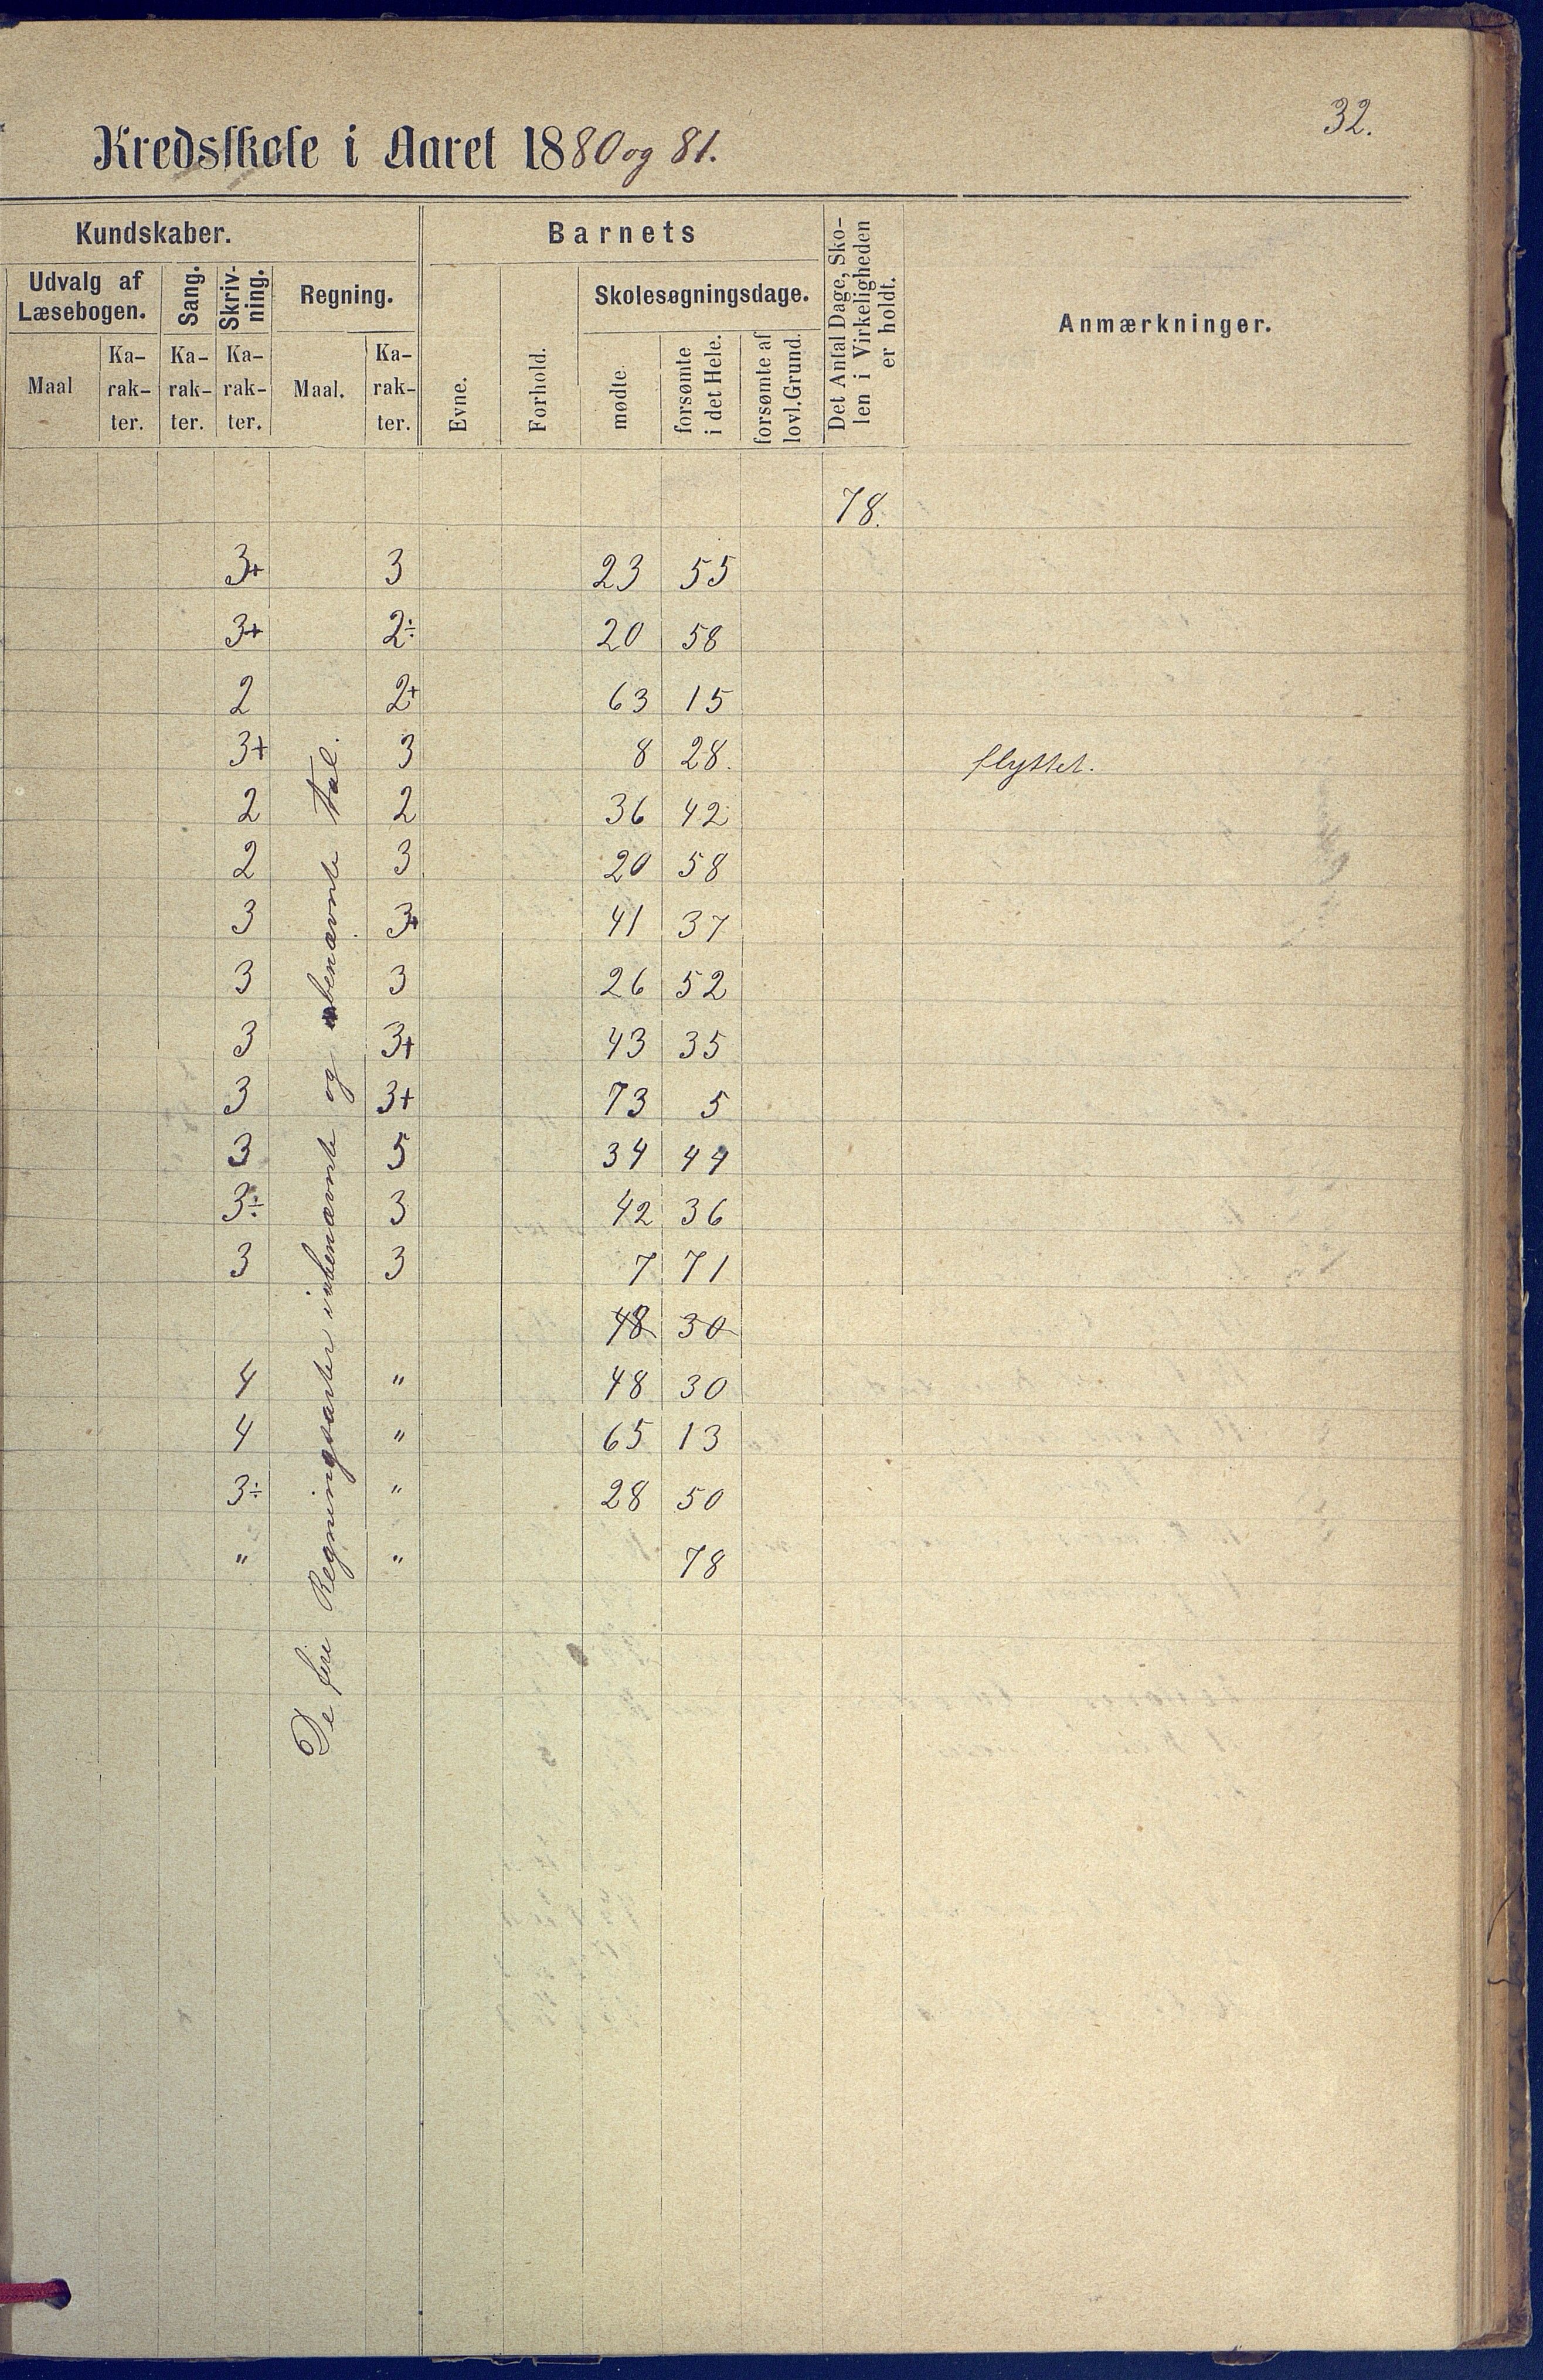 32.
Kredsskole i Aaret 1880 og 81.
Kundskaber.
Barnets
Det Antal Dage, Sko-
len i Virkeligheden
er holdt.
Anmærkninger.
Udvalg af
Læsebogen.
Sang.
Skriv-
ning.
Regning.
Skolesøgningsdage.
Maal
Ka-
rak-
ter.
Ka-
rak-
ter.
Ka-
rak-
ter.
Maal.
Ka-
rak-
ter.
Evne.
Forhold.
mødte.
forsømte
i det Hele.
forsømte af
lovl. Grund.
78.
3+ 3 23 55
3+ 2÷ 20 58
2 2+ 63 15
3+ 3 8 28. flyttet.
2 2 36 42
2 3 20 58
3 3+ 41 37
3 3 26 52
3 3+ 43 35
3 3+ 73 5
3 5 34 44
3÷ 3 42 36
3 3 7 71
48 30
4 " 48 30
4 " 65 13
3÷ " 28 50
" " 78
De fire Regningsarter i ubenævnte og benævnte Tal.